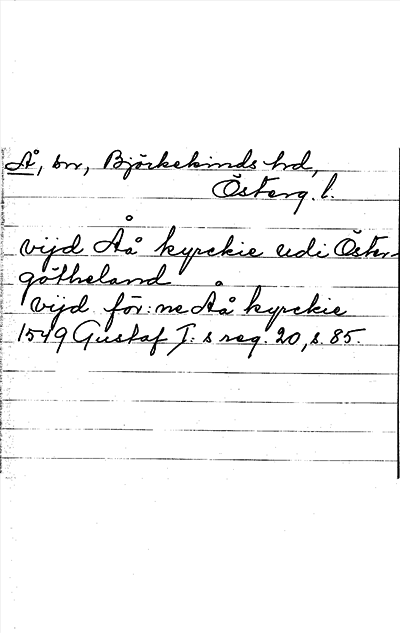 Å, sn, Björkekinds hd,
Österg. l.
vijd Åå kyrckie udi Öster-
götheland
vijd för:ne Åå kyrckie
1549 Gustaf I:s reg. 20, s. 85.